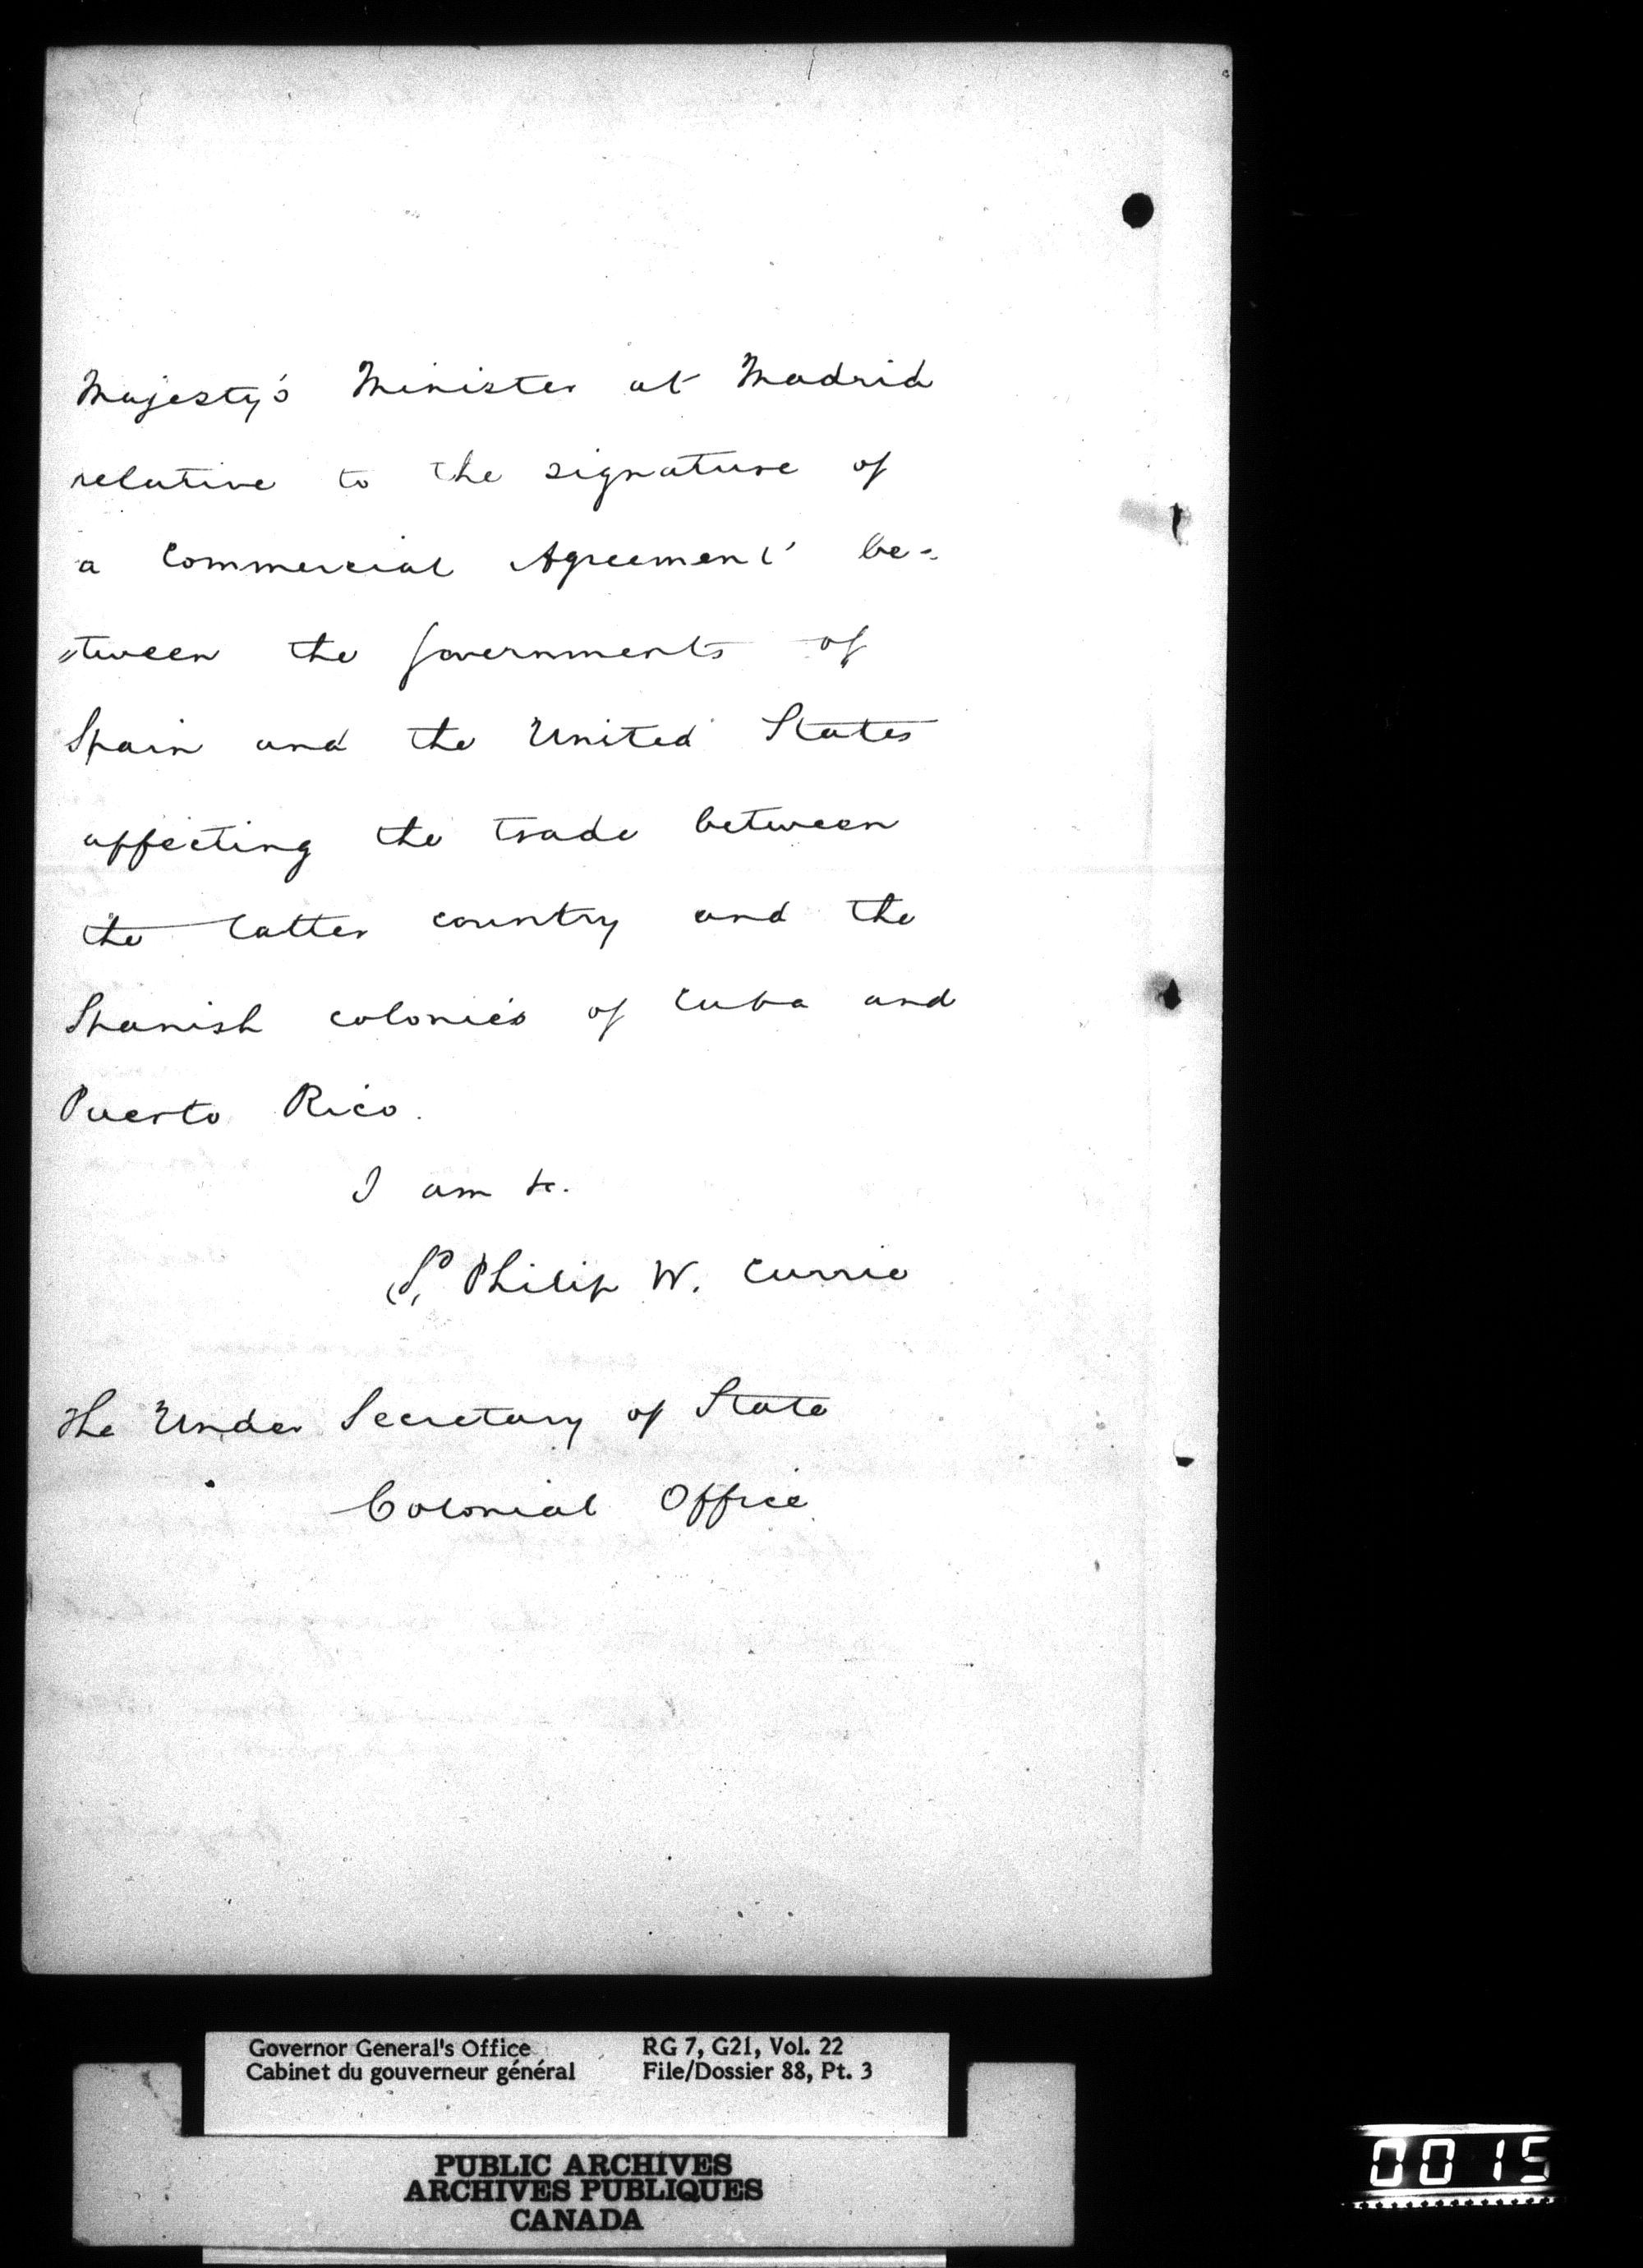 Majesty's Minister at Madrid
relative to the signature of
a Commercial Agreement be=
"tween the Governments of
Spain and the United States
affecting the trade between
the latter country and the
Spanish colonies of Cuba and
Puerto Rico.
I am &c.
(Sd, Philip W. Currie
The Under Secretary of State
Colonial Office
Governor General's Office RG 7, G21, Vol. 22
Cabinet du gouverneur général File/Dossier 88, Pt. 3
PUBLIC ARCHIVES
ARCHIVES PUBLIQUES
CANADA
0015